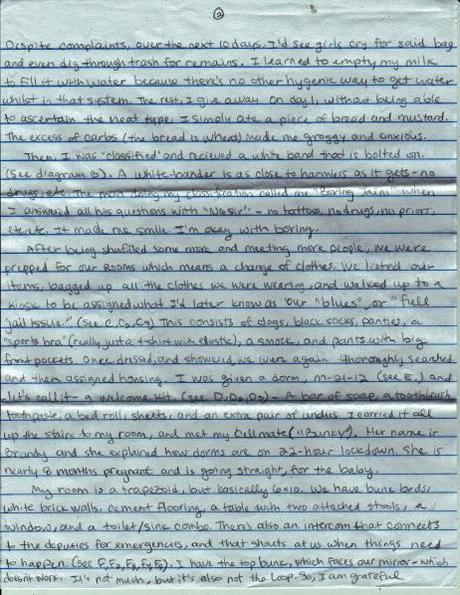 ②
Despite complaints, over the next 10 days, I'd see girls cry for said bag
and even dig through trash for remains. I learned to empty my milk
to fill it with water because there's no other hygenic way to get water
whilst in that system. The rest, I give away. On day 1, without being able
to ascertain the meat type, I simply ate a piece of bread and mustard.
The excess of carbs (the bread is wheat) made me groggy and anxious.
Then, I was "classified" and recieved a white band that is bolted on.
(See diagram B). A white-bander is as close to harmless as it gets - no
drugs, etc. The doing my classification called me "Boring Jaini" when
I answered all his questions with "No sir" - no tattoos, no drugs, no priors,
etc. etc. It made me smile. I'm okay with boring.
After being shuffled some more and meeting more people, we were
prepped for our rooms which means a change of clothes. We listed our
items, bagged up all the clothes we were wearing, and walked up to a
kiosk to be assigned what I'd later know as "our "blues", or "full
jail issue." (See C, C2, C3) This consists of clogs, black socks, panties, a
"sports bra" (really just a t-shirt with elastic), a smock, and pants with big
front pockets. Once dressed, and showered, we were again thoroughly searched
and then assigned housing. I was given a dorm, M-21-12 (see E.) and
- let's call it - a welcome kit. (see D, D2, D3) - A bar of soap, a toothbrush,
toothpaste, a bed roll, sheets, and an extra pair of undies. I carried it all
up the stairs to my room, and met my Cellmate ("Bunky"). Her name is
Brandy and she explained how dorms are on 22-hour lockdown. She is
nearly 8 months pregnant and is going straight, for the baby.
My room is a trapezoid, but basically 6x10. We have bunk beds,
white brick walls, cement flooring, a table with two attached stools, a
window, and a toilet/sink combo. There's also an intercom that connects
to the deputies for emergencies, and that shouts at us when things need
to happen. (See F, F2, F3, F4, F5). I have the top bunk, which faces our mirror - which
doesn't work. It's not much, but it's also not the loop. So, I am grateful.